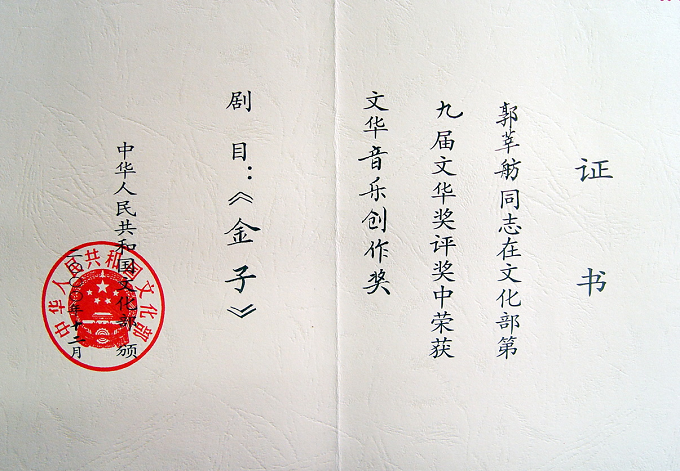 证书
郭莘舫同志在文化部第
九届文华奖评奖中荣获
文华音乐创作奖
剧目：《金子》
中华人民共和国文化部 颁
年十二月
中华人民共和国文化部